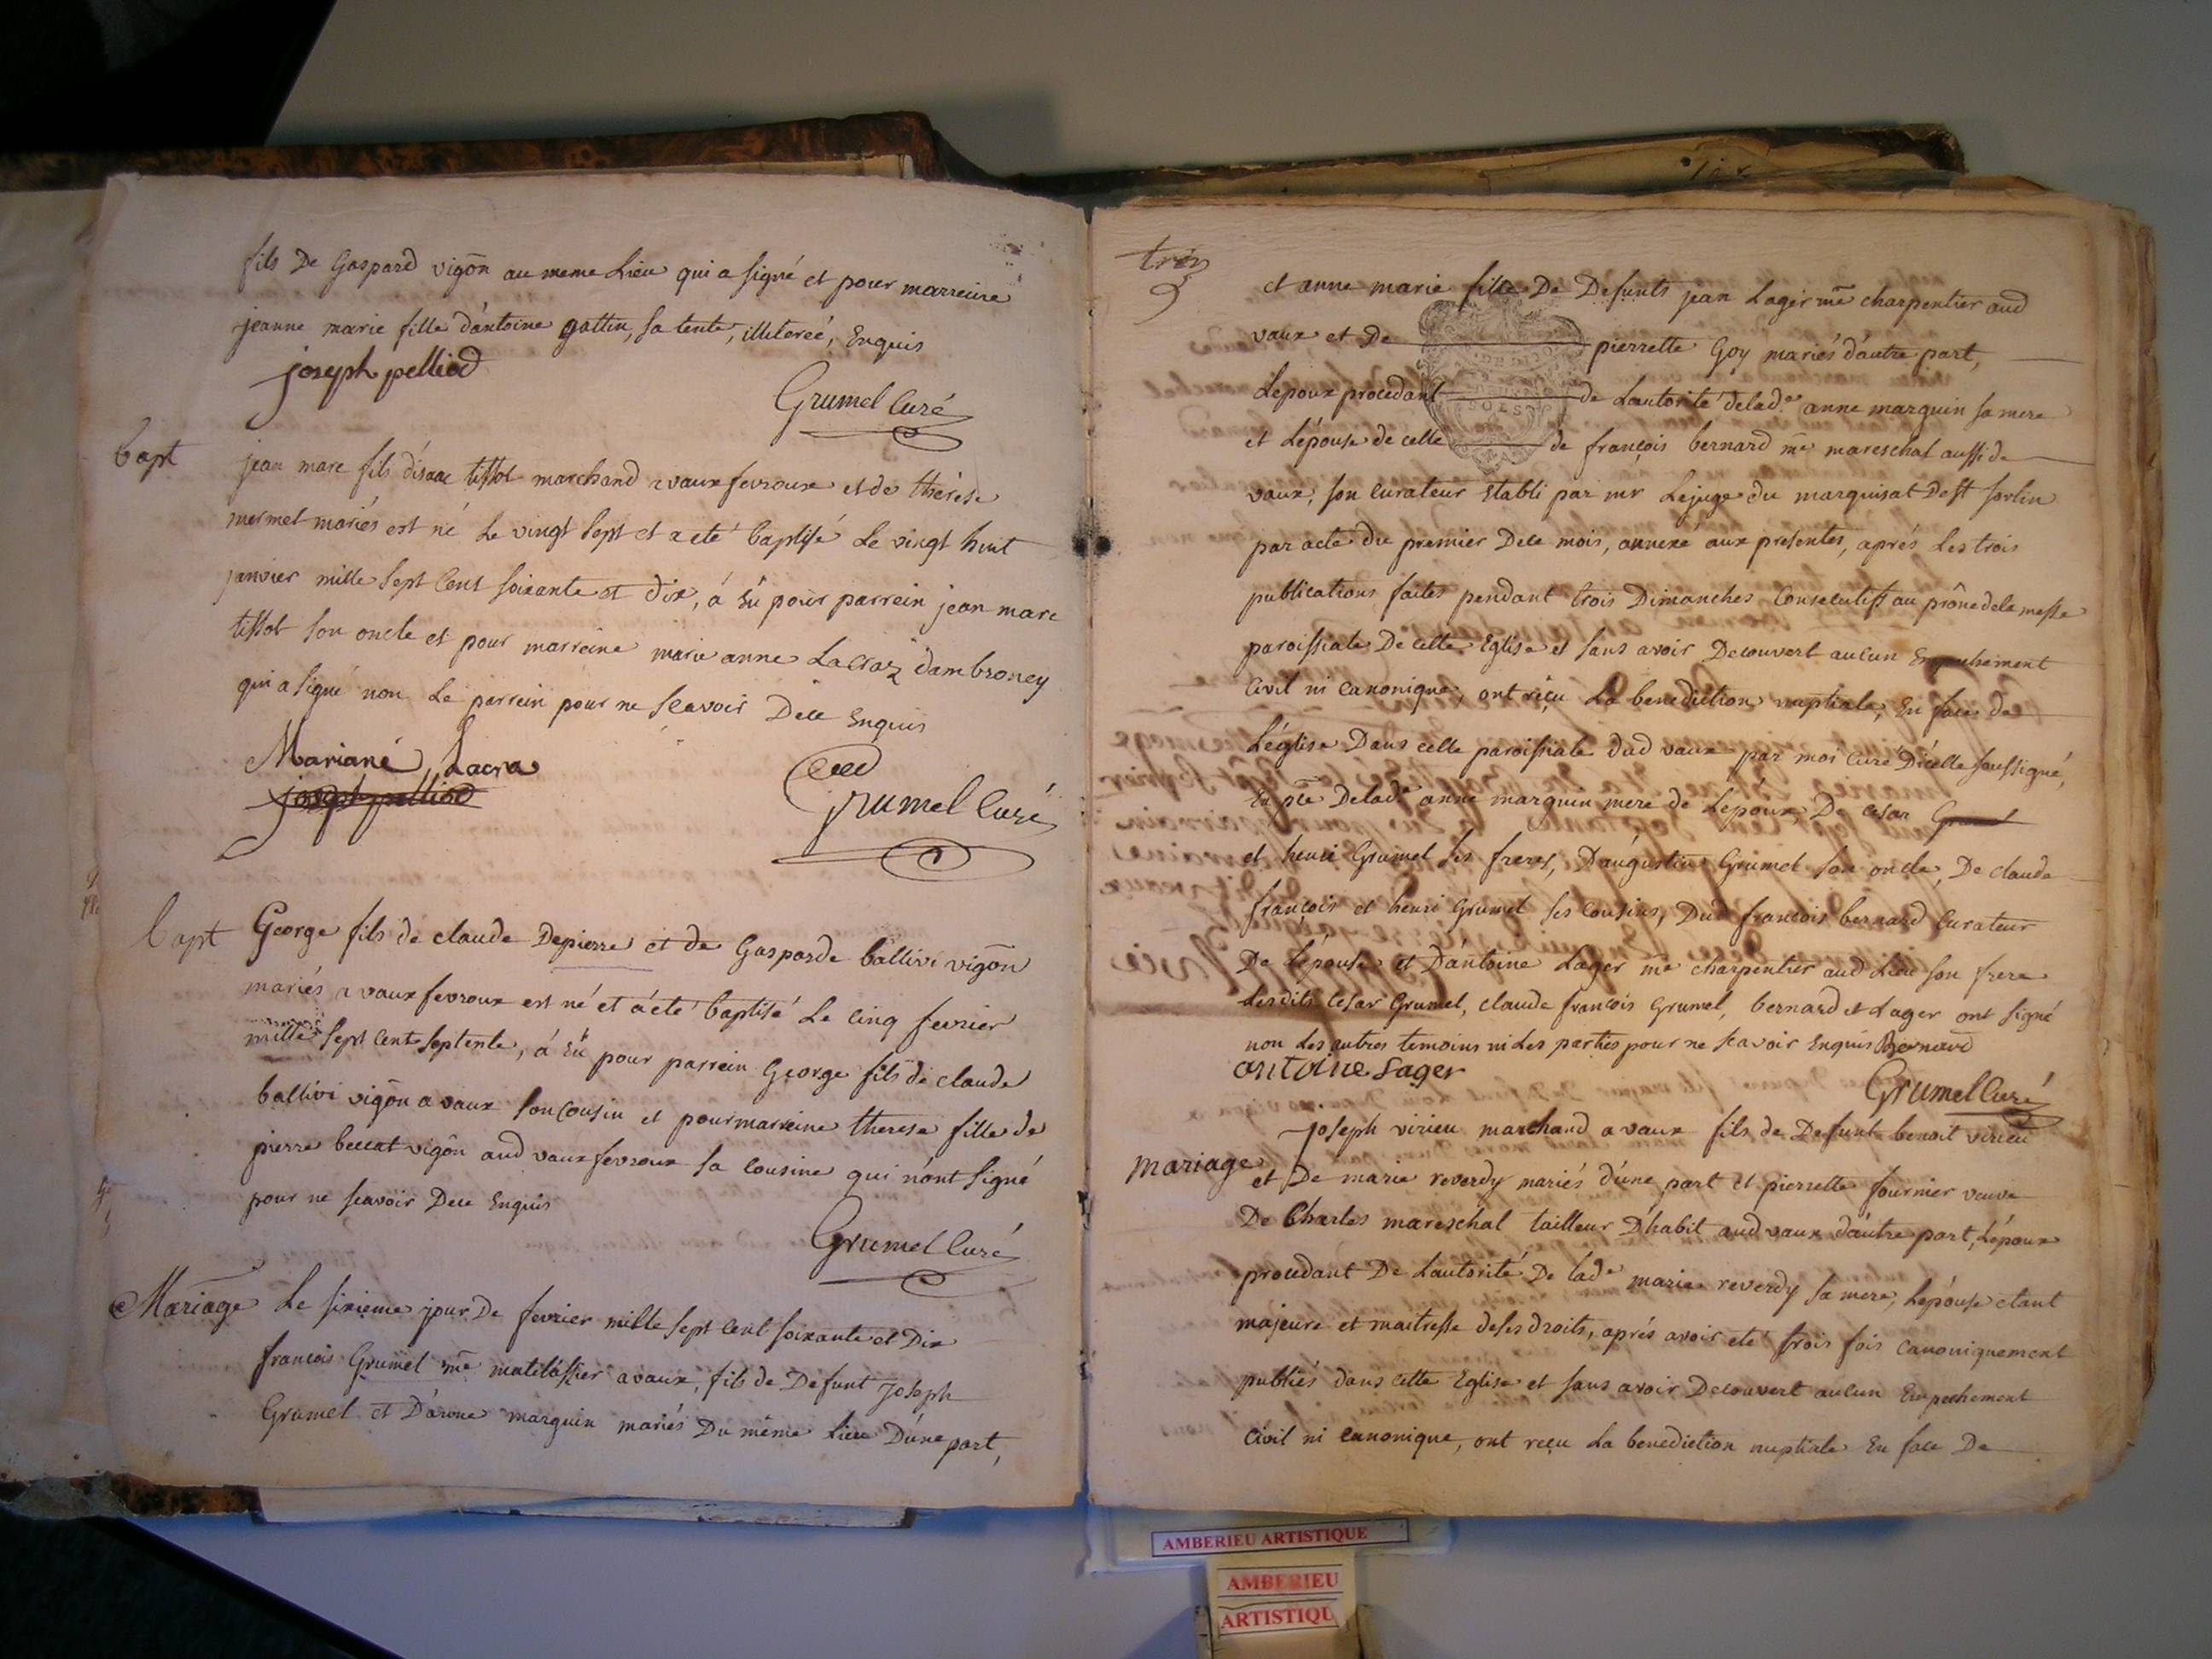 fils De Gaspard vigōn au meme Lieu qui a signé et pour marreine
jeanne marie fille d'antoine gattin, sa tente, illiterée, Enquis
joseph pelliod
Grumel Curé
bapt
jean marc fils d'isaac tissot marchand a vauxfevroux et de thérèse
mermet mariés est né Le vingt sept et a eté baptisé Le vingt huit
janvier mille sept Cent soixante et dix, á Eü pour parrein jean marc
tissot son oncle et pour marreine marie anne Lacraz d'ambroney
qui a signé non Le parrein pour ne scavoir Dece Enquis
Mariané Lacra
joseph pelliod
Grumel Curé
bapt
George fils de claude Depierre et de Gasparde ballivi vigōn
mariés a vauxfevroux est né et á eté baptisé Le Cinq fevrier
mille sept Cent septente, á Eü pour parrein George fils de claude
ballivi vigōn a vaux son Cousin et pour marreine therese fille de
pierre beccat vigōn aud vauxfevroux sa cousine qui n'ont signé
pour ne scavoir Dece Enquis
Grumel Curé
Mariage
Le sixieme jour De fevrier mille sept Cent soixante et Dix
francois Grumel mē matelassier a vaux, fils de Defunt Joseph
Grumel et D'anne marguin mariés Du même Lieu D'une part,
et anne marie fille De Defunts jean Lager mē charpentier aud
vaux et De pierrette Goy mariés d'autre part,
Lepoux procedant de L'autorité delade anne marguin sa mere
et L'épouse de celle de françois bernard mē mareschal aussi de
vaux, son Curateur Etabli par mr Lejuge du marquisat De st sorlin
par acte du premier Dece mois, annexé aux presentes, aprés Les trois
publications faites pendant trois Dimanches Consecutifs au prône dela messe
paroissiale De cette Eglise et sans avoir Decouvert aucun Empechement
Civil ni Canonique, ont reçu La benediction nuptiale, En face de
L'église Dans celle paroissiale dud vaux par moi Curé D'icelle soussigné,
En pce Delade anne marguin mere de Lepoux, De cesar Grumel
et henri Grumel ses freres, D'augustin Grumel son oncle, De claude
françois et henri Grumel ses Cousins, Dud francois bernard Curateur
De L'épouse et D'antoine Lager mē charpentier aud Lieu son frere
Lesdits Cesar Grumel, claude francois Grumel, bernard et Lager ont signé
non Les autres temoins ni Les parties pour ne scavoir Enquis Bernard
antoine Lager
Grumel Curé
mariage
Joseph virieu marchand a vaux fils de Defunt benoit virieu
et De marie reverdy mariés d'une part et pierrette fournier veuve
De Charles mareschal tailleur D'habit aud vaux d'autre part, L'époux
procedant De L'autorité De lade marie reverdy sa mere, L'épouse etant
majeure et maitresse de ses droits, aprés avoir eté trois fois canoniquement
publiés dans cette Eglise et sans avoir Decouvert aucun Empechement
Civil ni Canonique, ont reçu La benediction nuptiale En face De
AMBERIEU ARTISTIQUE
AMBERIEU
ARTISTIQU